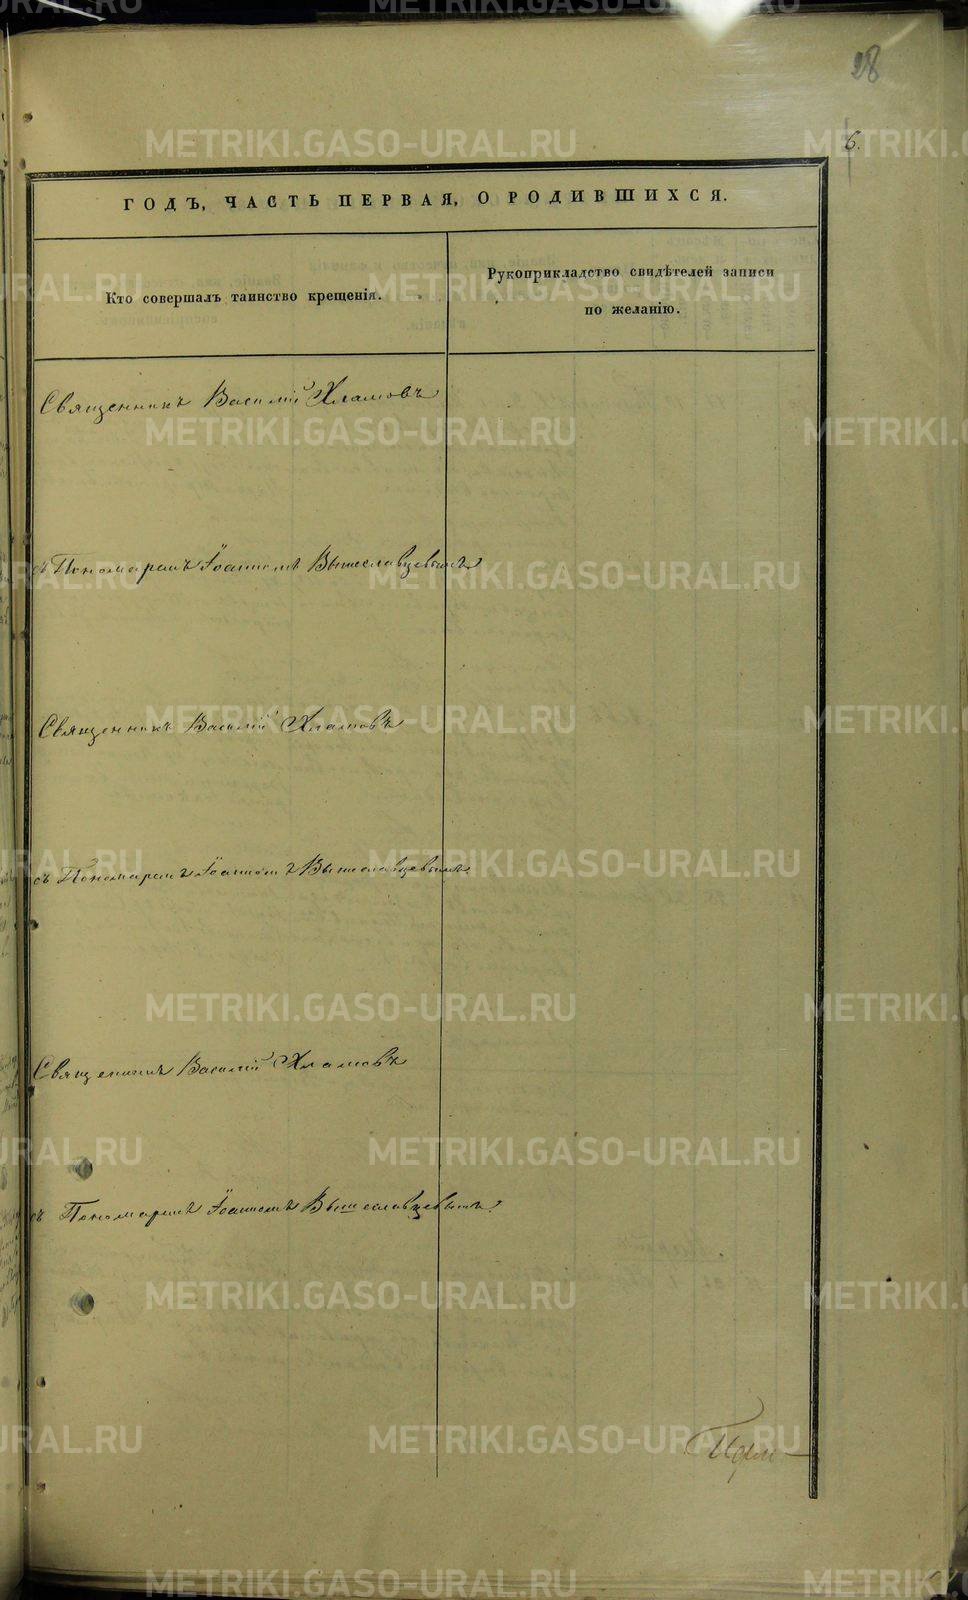 28
6.
ГОДЪ, ЧАСТЬ ПЕРВАЯ, О РОДИВШИХСЯ.
Кто совершалъ таинство крещенія.
Рукоприкладство свидѣтелей записи
по желанію.
Священникъ Василій Хламовъ
съ Пономаремъ Іоанномъ Вышеславцевымъ
Священникъ Василій Хламовъ
съ Пономаремъ Іоанномъ Вышеславцевымъ
Священникъ Василій Хламовъ
съ Пономаремъ Іоанномъ Вышеславцевымъ.
METRIKI.GASO-URAL.RU